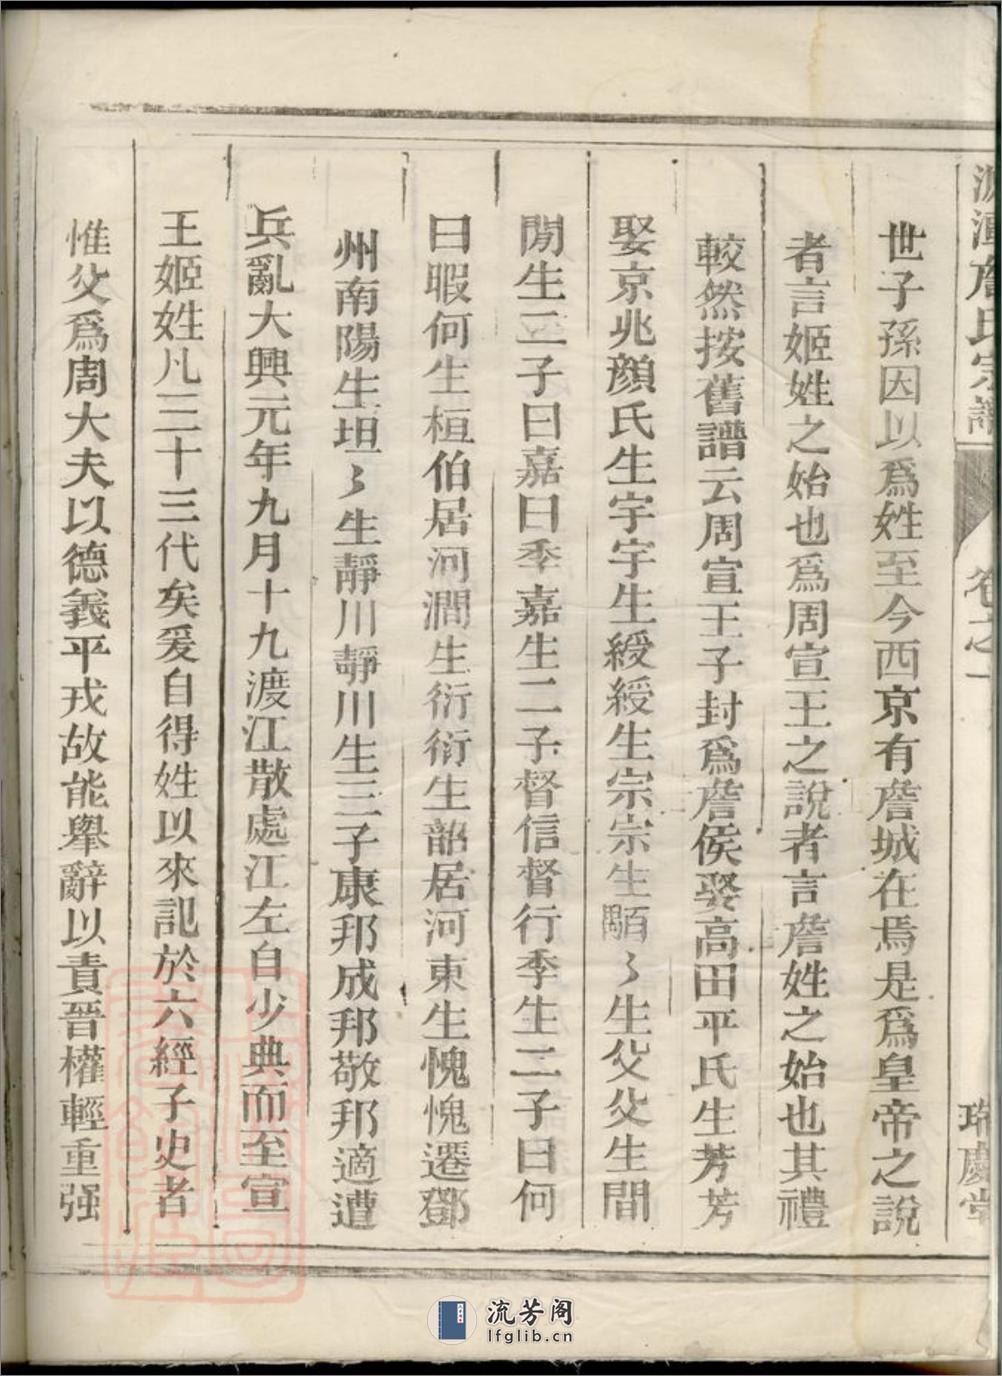 詹氏宗譜 卷之一 瑞慶堂
世子孫因以爲姓至今西京有詹城在焉是爲皇帝之說
者言姬姓之始也爲周宣王之說者言詹姓之始也其禮
較然按舊譜云周宣王子封爲詹侯娶高田平氏生芳芳
娶京兆顏氏生宇宇生綬綬生宗宗生顒々生父父生間
閒生二子曰嘉曰季嘉生二子督信督行季生二子曰何
曰暇何生桓伯居河澗生衍衍生韶居河東生愧愧遷鄧
州南陽生坦々生靜川靜川生三子康邦成邦敬邦適遭
兵亂大興元年九月十九渡江散處江左自少典而至宣
王姬姓凡三十三代矣爰自得姓以來記於六經子史者
惟父爲周大夫以德義平戎故能舉辭以責晉權輕重强
流芳阁
lfglib.cn